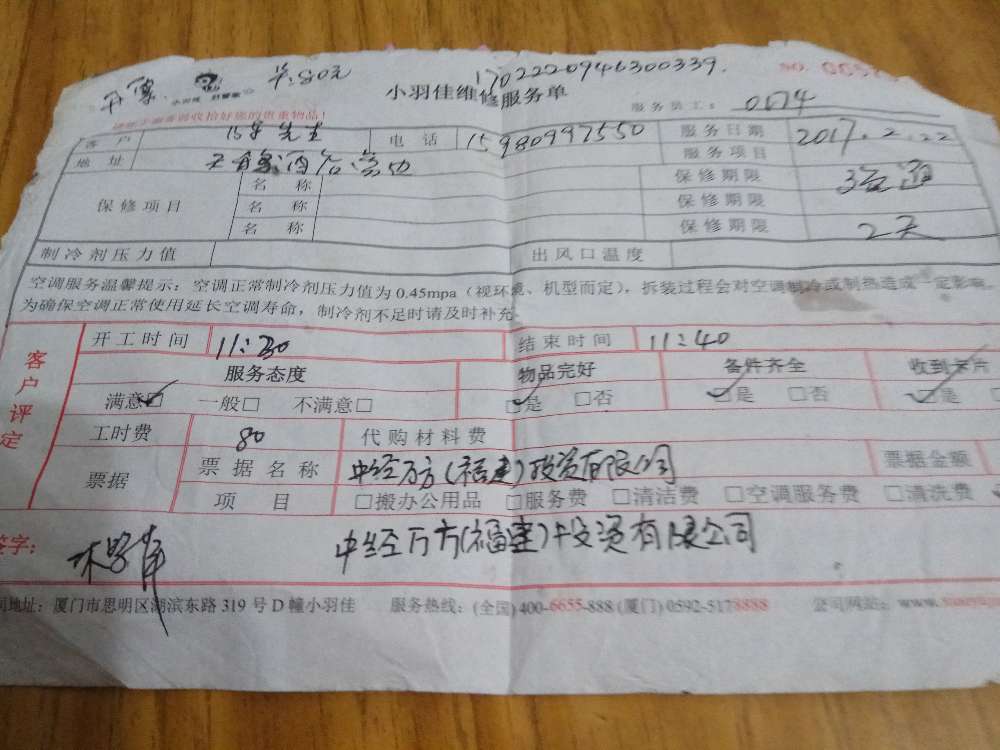 开票 单:80元 1702220946300339
小羽佳 好管家 小羽佳维修服务单 NO.
服务员工: 0674
请您于服务前收拾好您的贵重物品!
客户 先生 电话 15980997550 服务日期 2017.2.22
地址 服务项目 疏通
保修项目 名称 保修期限
名称 保修期限
名称 保修期限 2天
制冷剂压力值 出风口温度
空调服务温馨提示:空调正常制冷剂压力值为0.45mpa(视环境、机型而定),拆装过程会对空调制冷或制热造成一定影响。
为确保空调正常使用延长空调寿命,制冷剂不足时请及时补充。
客户评定 开工时间 11:30 结束时间 11:40
服务态度 物品完好 备件齐全 收到卡片
满意☑ 一般□ 不满意□ ☑是 □否 ☑是 □否 ☑是
工时费 80 代购材料费
票据 票据名称 中经万方(福建)投资有限公司 票据金额
项目 □搬办公用品 □服务费 □清洁费 □空调服务费 □清洗费
签字: 中经万方(福建)投资有限公司
司地址:厦门市思明区湖滨东路319号D幢小羽佳 服务热线:(全国)400-6655-888 (厦门)0592-5178888 公司网站:www.